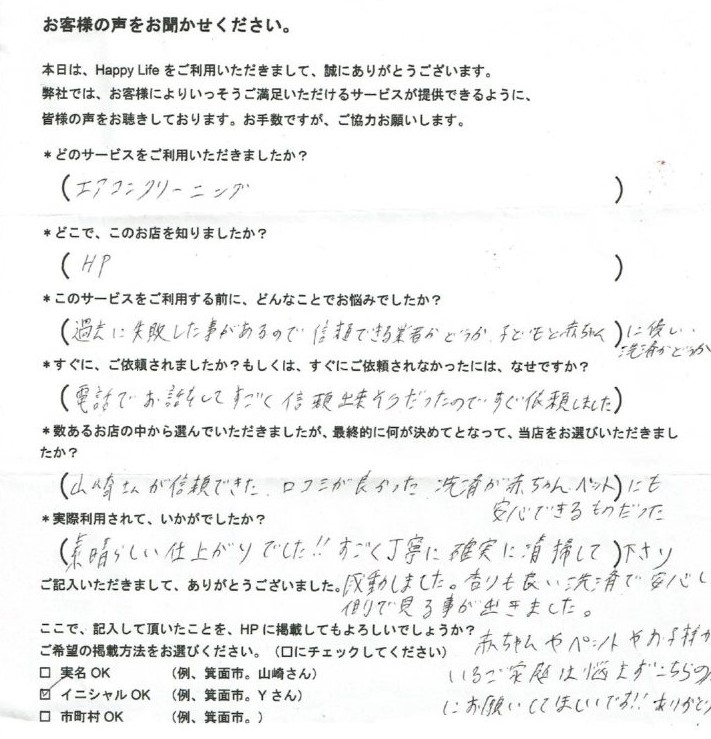 お客様の声をお聞かせください。
本日は、Happy Life をご利用いただきまして、誠にありがとうございます。
弊社では、お客様によりいっそうご満足いただけるサービスが提供できるように、
皆様の声をお聴きしております。お手数ですが、ご協力お願いします。
*どのサービスをご利用いただきましたか?
(エアコンクリーニング)
*どこで、このお店を知りましたか?
(HP)
*このサービスをご利用する前に、どんなことでお悩みでしたか?
(過去に失敗した事があるので 信頼できる業者かどうか、子どもと赤ちゃん)に優しい
洗済かどうか
*すぐに、ご依頼されましたか?もしくは、すぐにご依頼されなかったには、なぜですか?
(電話でお話をしてすごく信頼出来そうだったので すぐ依頼しました)
*数あるお店の中から選んでいただきましたが、最終的に何が決めてとなって、当店をお選びいただきまし
たか?
(山崎さんが信頼できた、口コミが良かった 洗済が赤ちゃん・ペット)にも
安心できるものだった
*実際利用されて、いかがでしたか?
(素晴らしい仕上がりでした!!すごく丁寧に確実に清掃して)下さり
ご記入いただきまして、ありがとうございました。感動しました。香りも良い洗済で安心し
側で見る事が出きました。
ここで、記入して頂いたことを、HP に掲載してもよろしいでしょうか?
赤ちゃんやペットやお子様が
ご希望の掲載方法をお選びください。(口にチェックしてください)
いるご家庭は悩まずこちらの
□ 実名 OK (例、箕面市。山崎さん)
☑ イニシャル OK (例、箕面市。Y さん)
にお願いしてほしいです!!ありがとう
□ 市町村 OK (例、箕面市。)